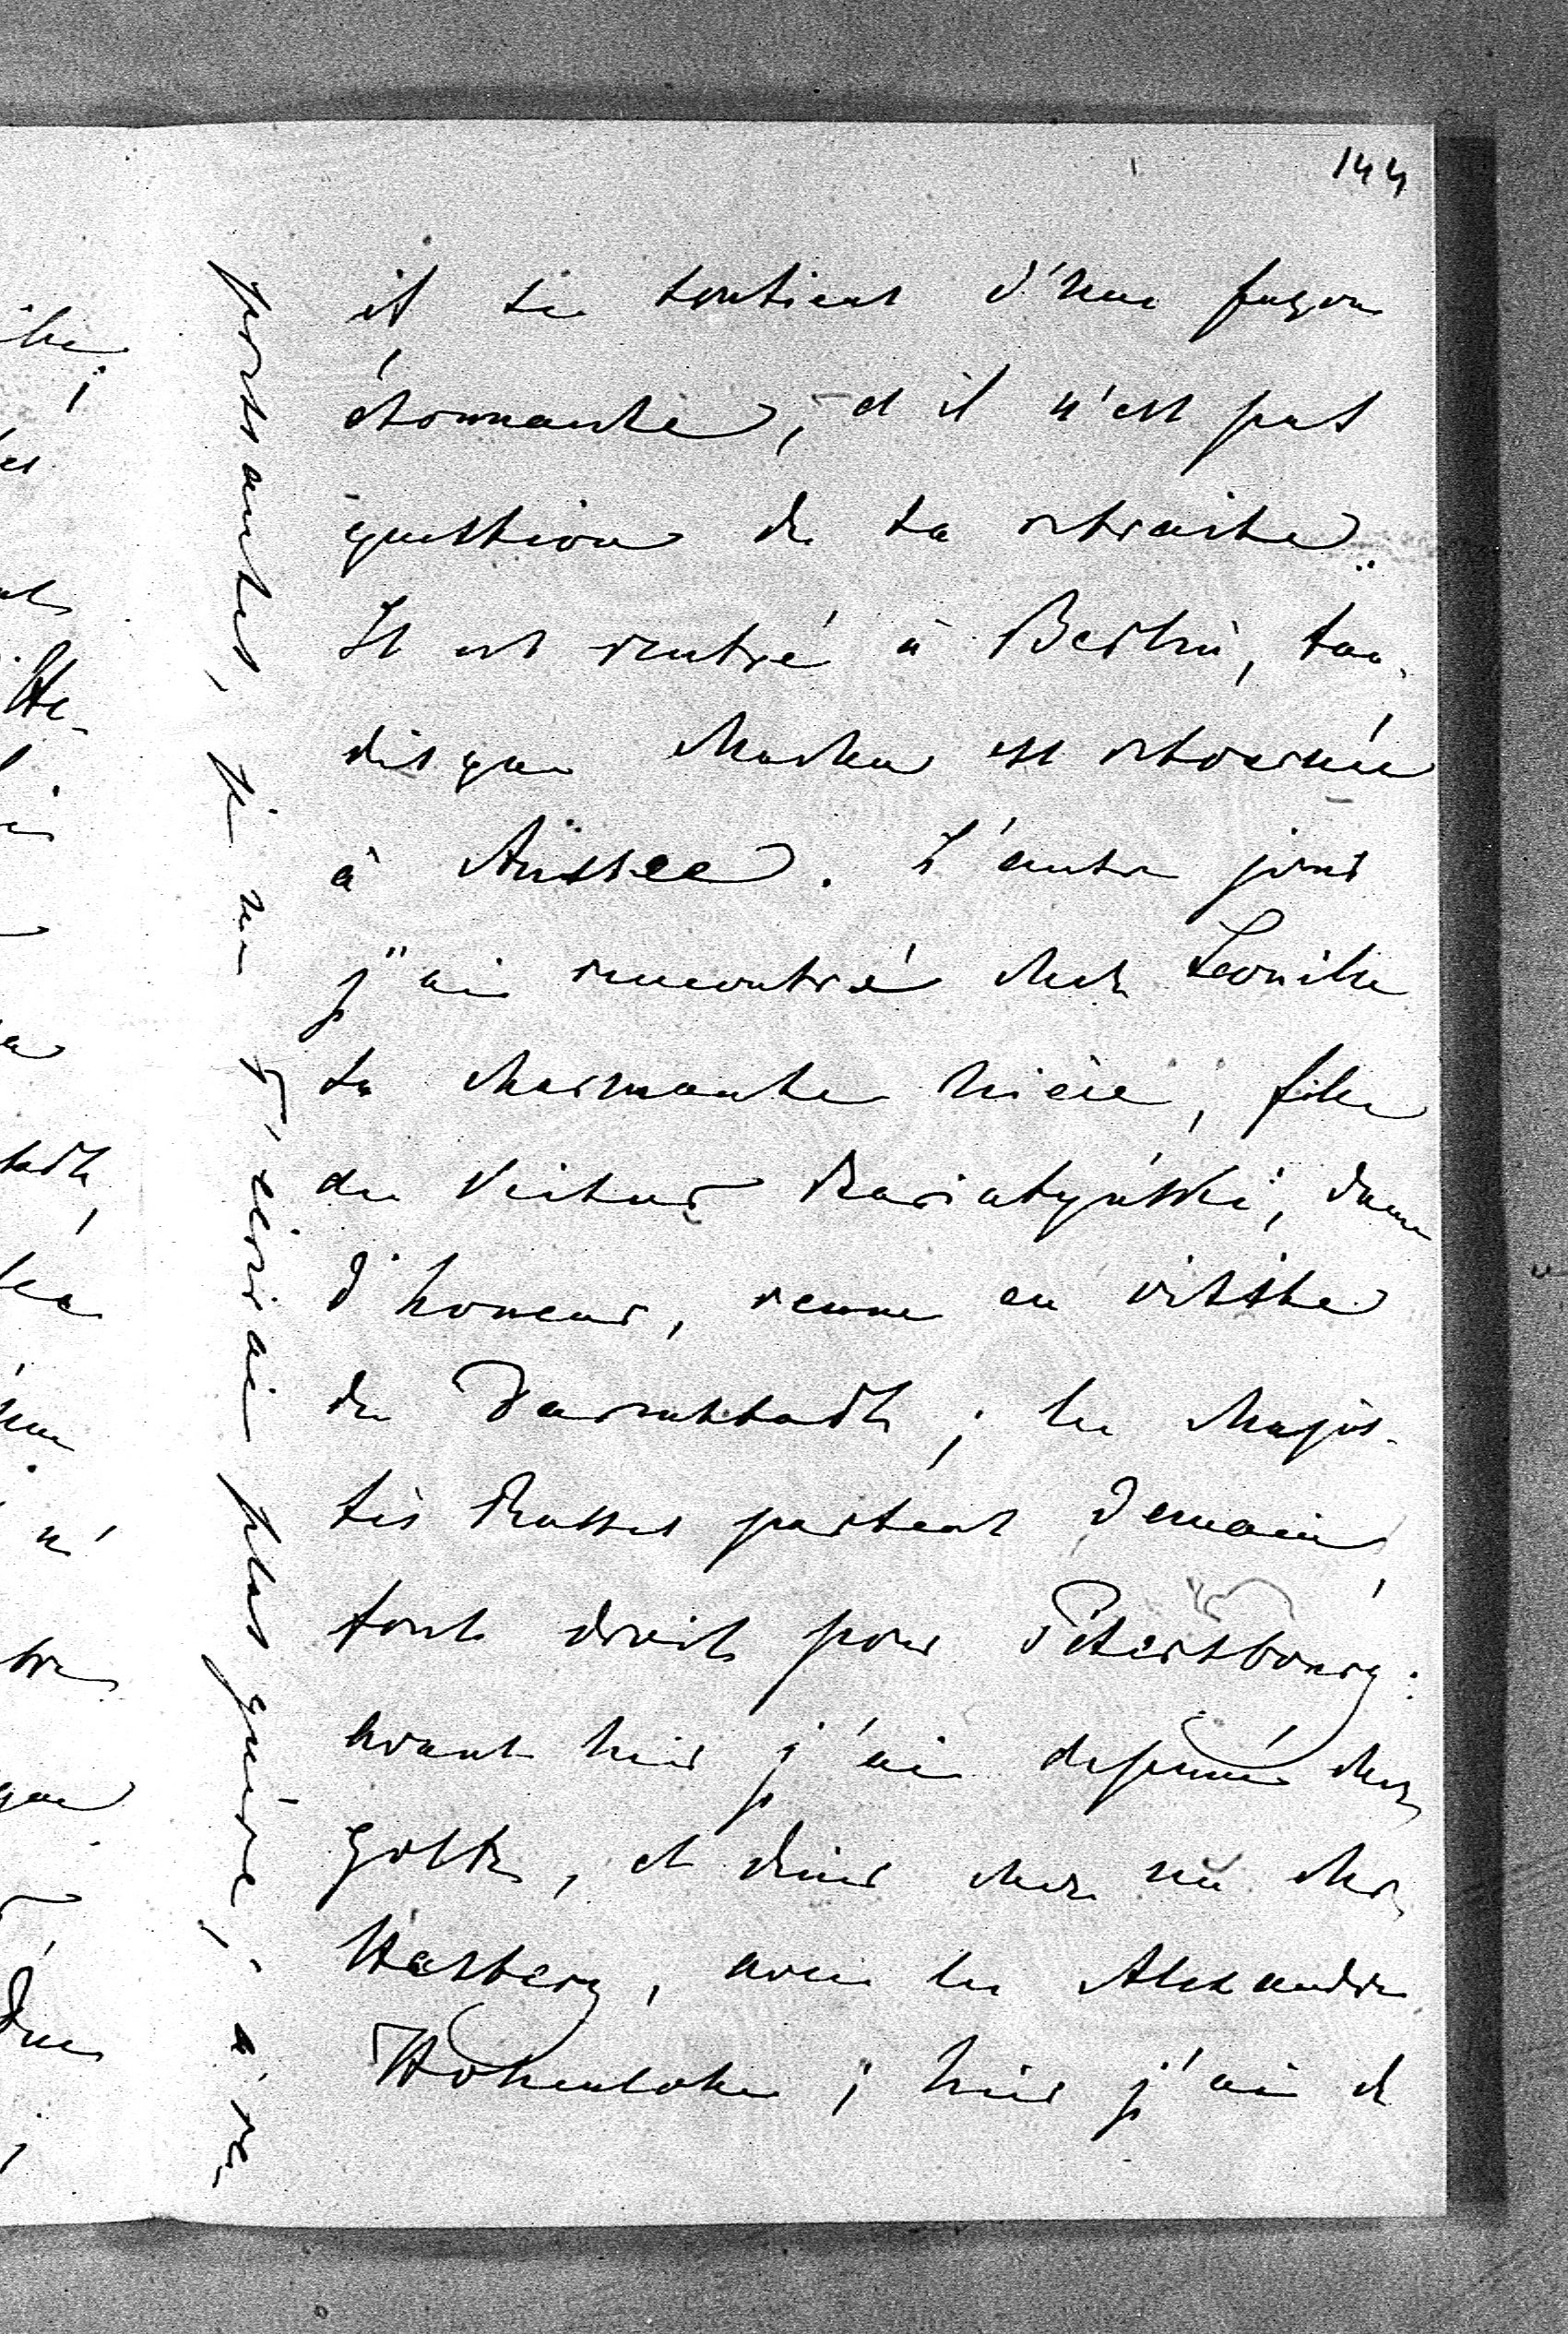 144
il se soutient d'une façon
étonnante, et il n'est pas
question de sa retraite.
Il est rentré à Berlin, tan-
dis que Macha est retournée
à Aussee. L'autre jour
j'ai rencontré chez Leonille
sa charmante nièce, fille
de Victor Bariatynski, dame
d'honneur, venue en visite
de Darmstadt; les Majes-
tés Russes partent demain,
tout droit pour Pétersbourg:
avant hier j'ai dejeuné chez
Goltz, et diner chez un Mr.
Warberg, avec les Alexandre
Hohenlohe; hier j'ai d
portantes, je ne t'écrirai plus guère, à re-